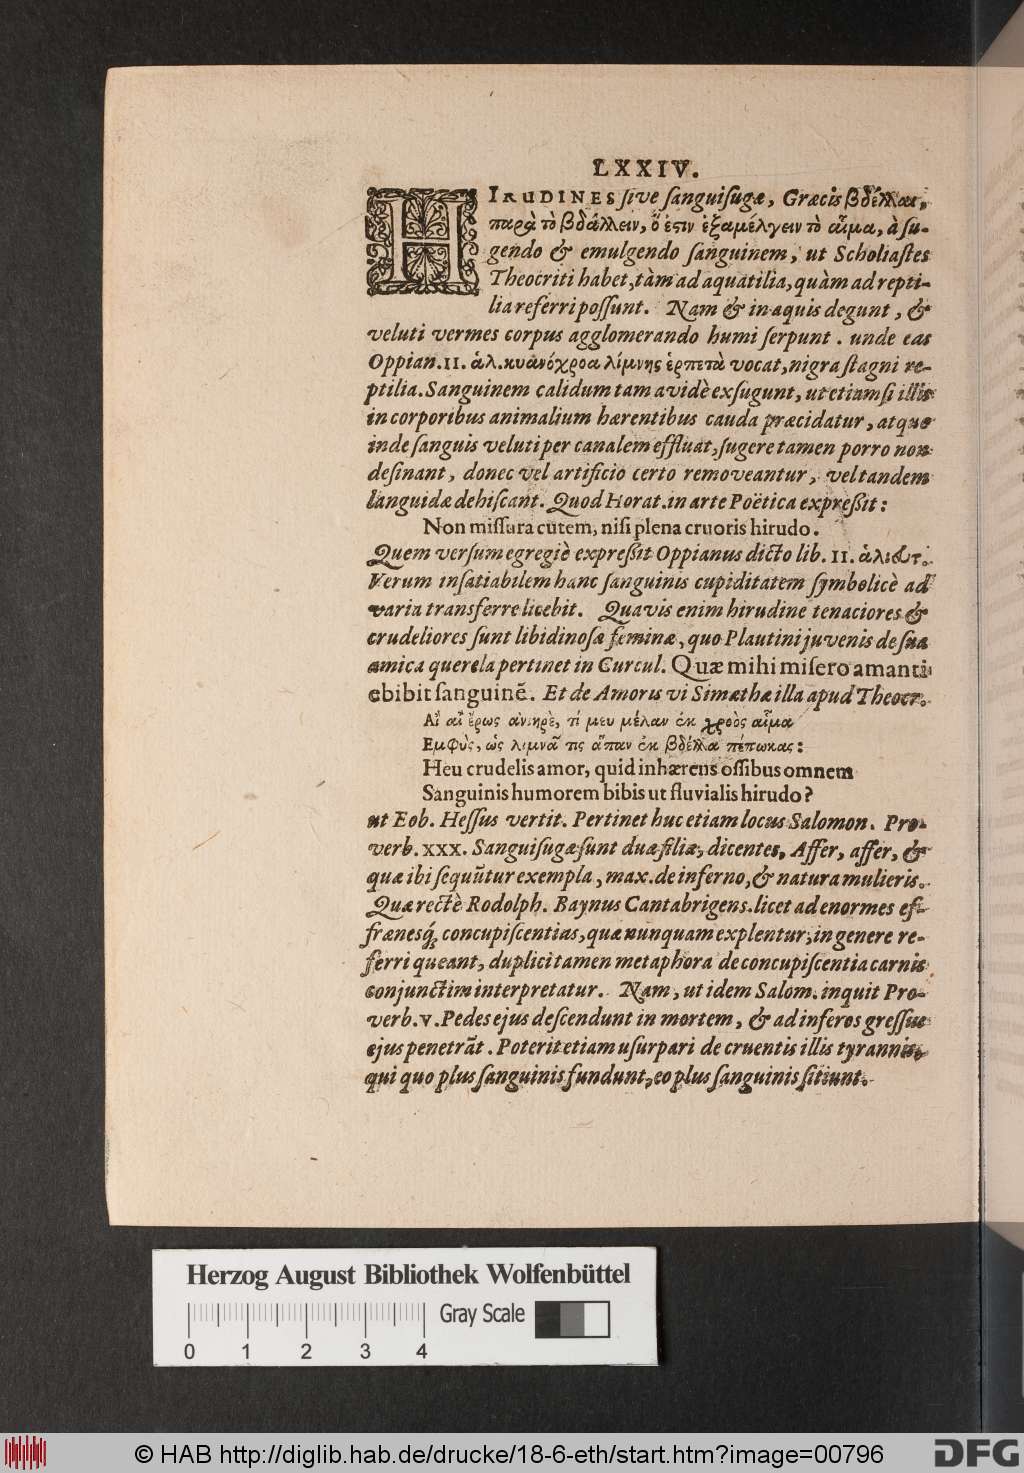 LXXIV.
HIRUDINES ſive ſanguiſugæ, Græcis βδέλλαι,
παρὰ τὸ βδάλλειν, ὅ ἐστιν ἐξαμέλγειν τὸ αἷμα, à ſu-
gendo & emulgendo ſanguinem, ut Scholiaſtes
Theocriti habet, tàm ad aquatilia, quàm ad repti-
lia referri poſſunt. Nam & in aquis degunt, &
veluti vermes corpus agglomerando humi ſerpunt. unde eas
Oppian. II. ἁλ. κυανόχροα λίμνης ἑρπετὰ vocat, nigra ſtagni re-
ptilia. Sanguinem calidum tam avidè exſugunt, ut etiamſi illis
in corporibus animalium hærentibus cauda præcidatur, atque
inde ſanguis veluti per canalem effluat, ſugere tamen porro non
deſinant, donec vel artificio certo removeantur, vel tandem
languidæ dehiſcant. Quod Horat. in arte Poëtica expreßit:
Non miſſura cutem, niſi plena cruoris hirudo.
Quem verſum egregiè expreßit Oppianus dicto lib. II. ἁλιευτ.
Verum inſatiabilem hanc ſanguinis cupiditatem ſymbolicè ad
varia transferre licebit. Quavis enim hirudine tenaciores &
crudeliores ſunt libidinoſæ feminæ, quo Plautini juvenis de ſua
amica querela pertinet in Curcul. Quæ mihi miſero amanti
ebibit ſanguinẽ. Et de Amoris vi Simætha illa apud Theocr.
Αἲ αἲ ἔρως ἀνιηρὲ, τί μευ μέλαν ἐκ χροὸς αἷμα
Εμφὺς, ὡς λιμνᾶτις ἅπαν ἐκ βδέλλα πέπωκας:
Heu crudelis amor, quid inhærens oſſibus omnem
Sanguinis humorem bibis ut fluvialis hirudo?
ut Eob. Heſſus vertit. Pertinet huc etiam locus Salomon. Pro-
verb. XXX. Sanguiſugæ ſunt duæ filiæ, dicentes, Affer, affer, &
quæ ibi ſequũtur exempla, max. de inferno, & natura mulieris.
Quæ rectè Rodolph. Baynus Cantabrigens. licet ad enormes ef-
frænesq́; concupiſcentias, quæ nunquam explentur, in genere re-
ferri queant, duplici tamen metaphora de concupiſcentia carnis
conjunctim interpretatur. Nam, ut idem Salom. inquit Pro-
verb. V. Pedes ejus deſcendunt in mortem, & ad inferos greſſus
ejus penetrãt. Poterit etiam uſurpari de cruentis illis tyrannis,
qui quo plus ſanguinis fundunt, eo plus ſanguinis ſitiunt.
Herzog August Bibliothek Wolfenbüttel
Gray Scale
0 1 2 3 4
© HAB http://diglib.hab.de/drucke/18-6-eth/start.htm?image=00796
DFG